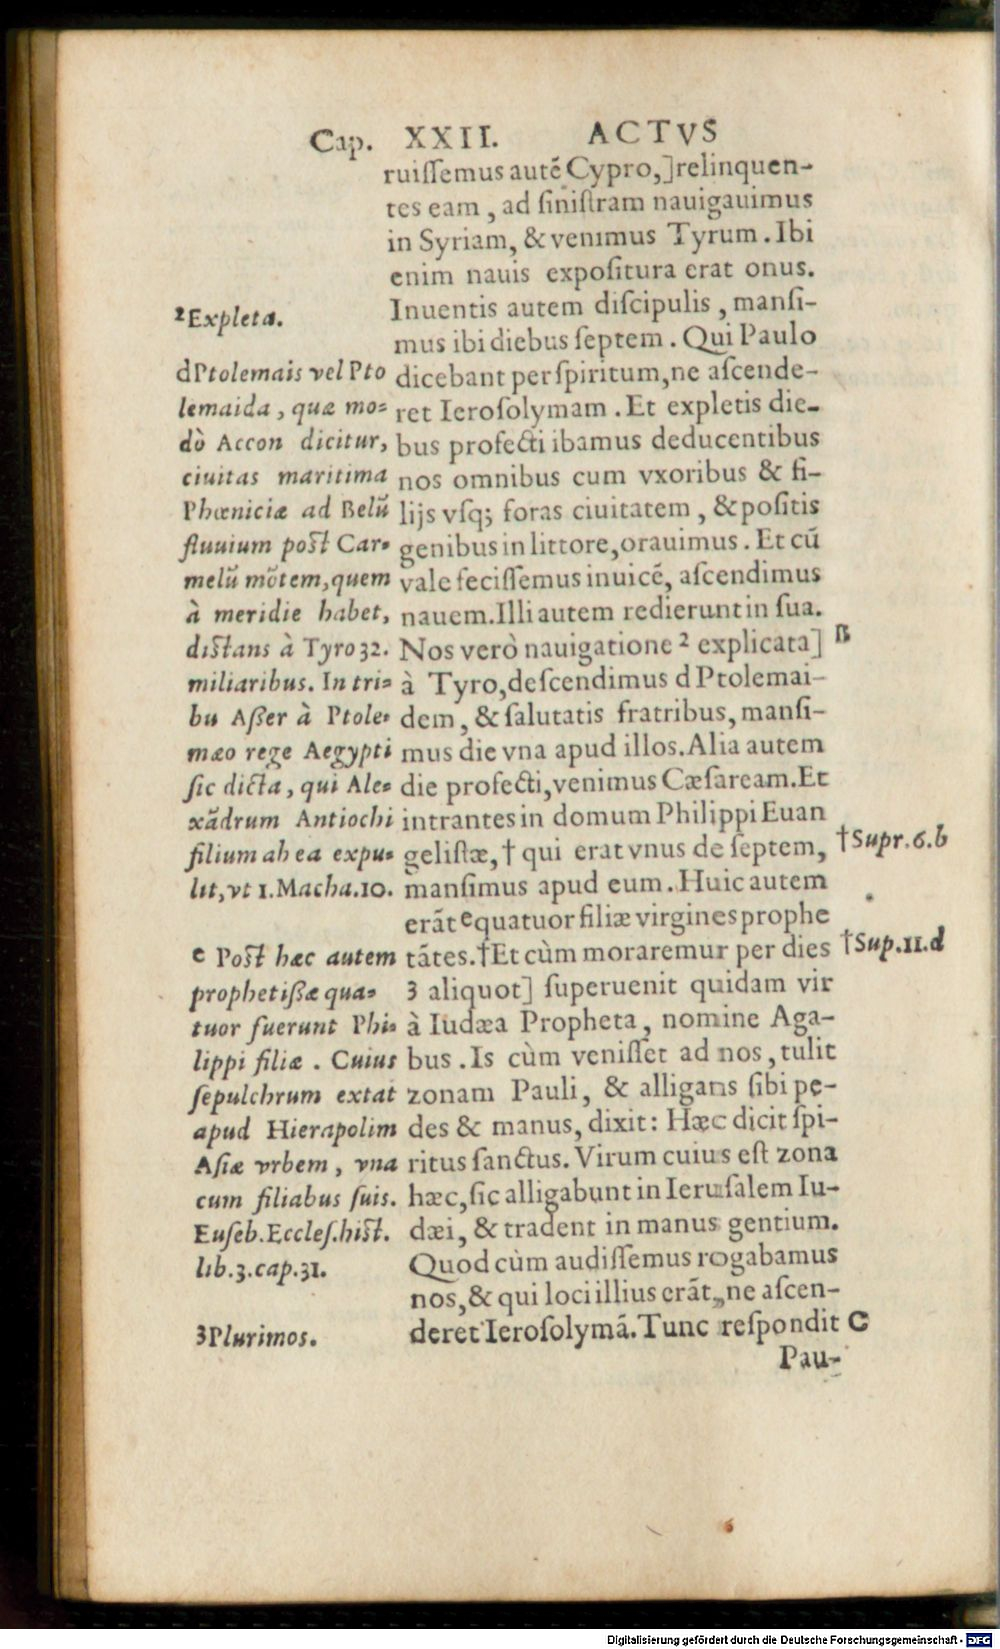 Cap. XXII. ACTVS
ruiſſemus autē Cypro,] relinquen-
tes eam, ad ſiniſtram nauigauimus
in Syriam, & venimus Tyrum. Ibi
enim nauis expoſitura erat onus.
Inuentis autem diſcipulis, manſi-
mus ibi diebus ſeptem. Qui Paulo
dicebant per ſpiritum, ne aſcende-
ret Ieroſolymam. Et expletis die-
bus profecti ibamus deducentibus
nos omnibus cum vxoribus & fi-
lijs vſq; foras ciuitatem, & poſitis
genibus in littore, orauimus. Et cū
vale feciſſemus inuicē, aſcendimus
nauem. Illi autem redierunt in ſua.
Nos verò nauigatione ² explicata]
à Tyro, deſcendimus d Ptolemai-
dem, & ſalutatis fratribus, manſi-
mus die vna apud illos. Alia autem
die profecti, venimus Cæſaream. Et
intrantes in domum Philippi Euan
geliſtæ, † qui erat vnus de ſeptem,
manſimus apud eum. Huic autem
erāt e quatuor filiæ virgines prophe
tātes. † Et cùm moraremur per dies
3 aliquot] ſuperuenit quidam vir
à Iudæa Propheta, nomine Aga-
bus. Is cùm veniſſet ad nos, tulit
zonam Pauli, & alligans ſibi pe-
des & manus, dixit: Hæc dicit ſpi-
ritus ſanctus. Virum cuius eſt zona
hæc, ſic alligabunt in Ieruſalem Iu-
dæi, & tradent in manus gentium.
Quod cùm audiſſemus rogabamus
nos, & qui loci illius erāt, ne aſcen-
deret Ieroſolymā. Tunc reſpondit
Pau-
² Expleta.
d Ptolemais vel Pto
lemaida, quæ mo-
dò Accon dicitur,
ciuitas maritima
Phœniciæ ad Belū
fluuium poſt Car-
melū mōtem, quem
à meridie habet,
diſtans à Tyro 32.
miliaribus. In tri-
bu Aßer à Ptole-
mæo rege Aegypti
ſic dicta, qui Ale-
xādrum Antiochi
filium ab ea expu-
lit, vt 1. Macha. 10.
e Poſt hæc autem
prophetißæ qua-
tuor fuerunt Phi-
lippi filiæ. Cuius
ſepulchrum extat
apud Hierapolim
Aſiæ vrbem, vna
cum filiabus ſuis.
Euſeb. Eccleſ. hiſt.
lib. 3. cap. 31.
3 Plurimos.
B
† Supr. 6. b
† Sup. 11. d
C
Digitalisierung gefördert durch die Deutsche Forschungsgemeinschaft - DFG